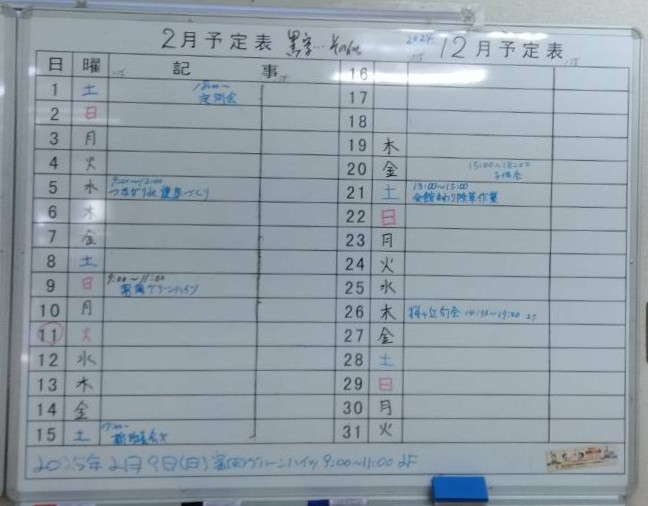 2月予定表 黒字…その他
2024 12月予定表
日 曜 記 事
1 土 定例会
2 日
3 月
4 火
5 水 9:00～12:00
つながりの健康づくり
6 木
7 金
8 土
9 日 9:00～11:00
グリーンハイツ
10 月
11 火
12 水
13 木
14 金
15 土
16
17
18
19 木
20 金 15:00～18:00
21 土 13:00～15:00
会館まわり除草作業
22 日
23 月
24 火
25 水
26 木 句会 14:30～17:30 2F
27 金
28 土
29 日
30 月
31 火
2025年2月9日(日) グリーンハイツ 9:00～11:00 2F